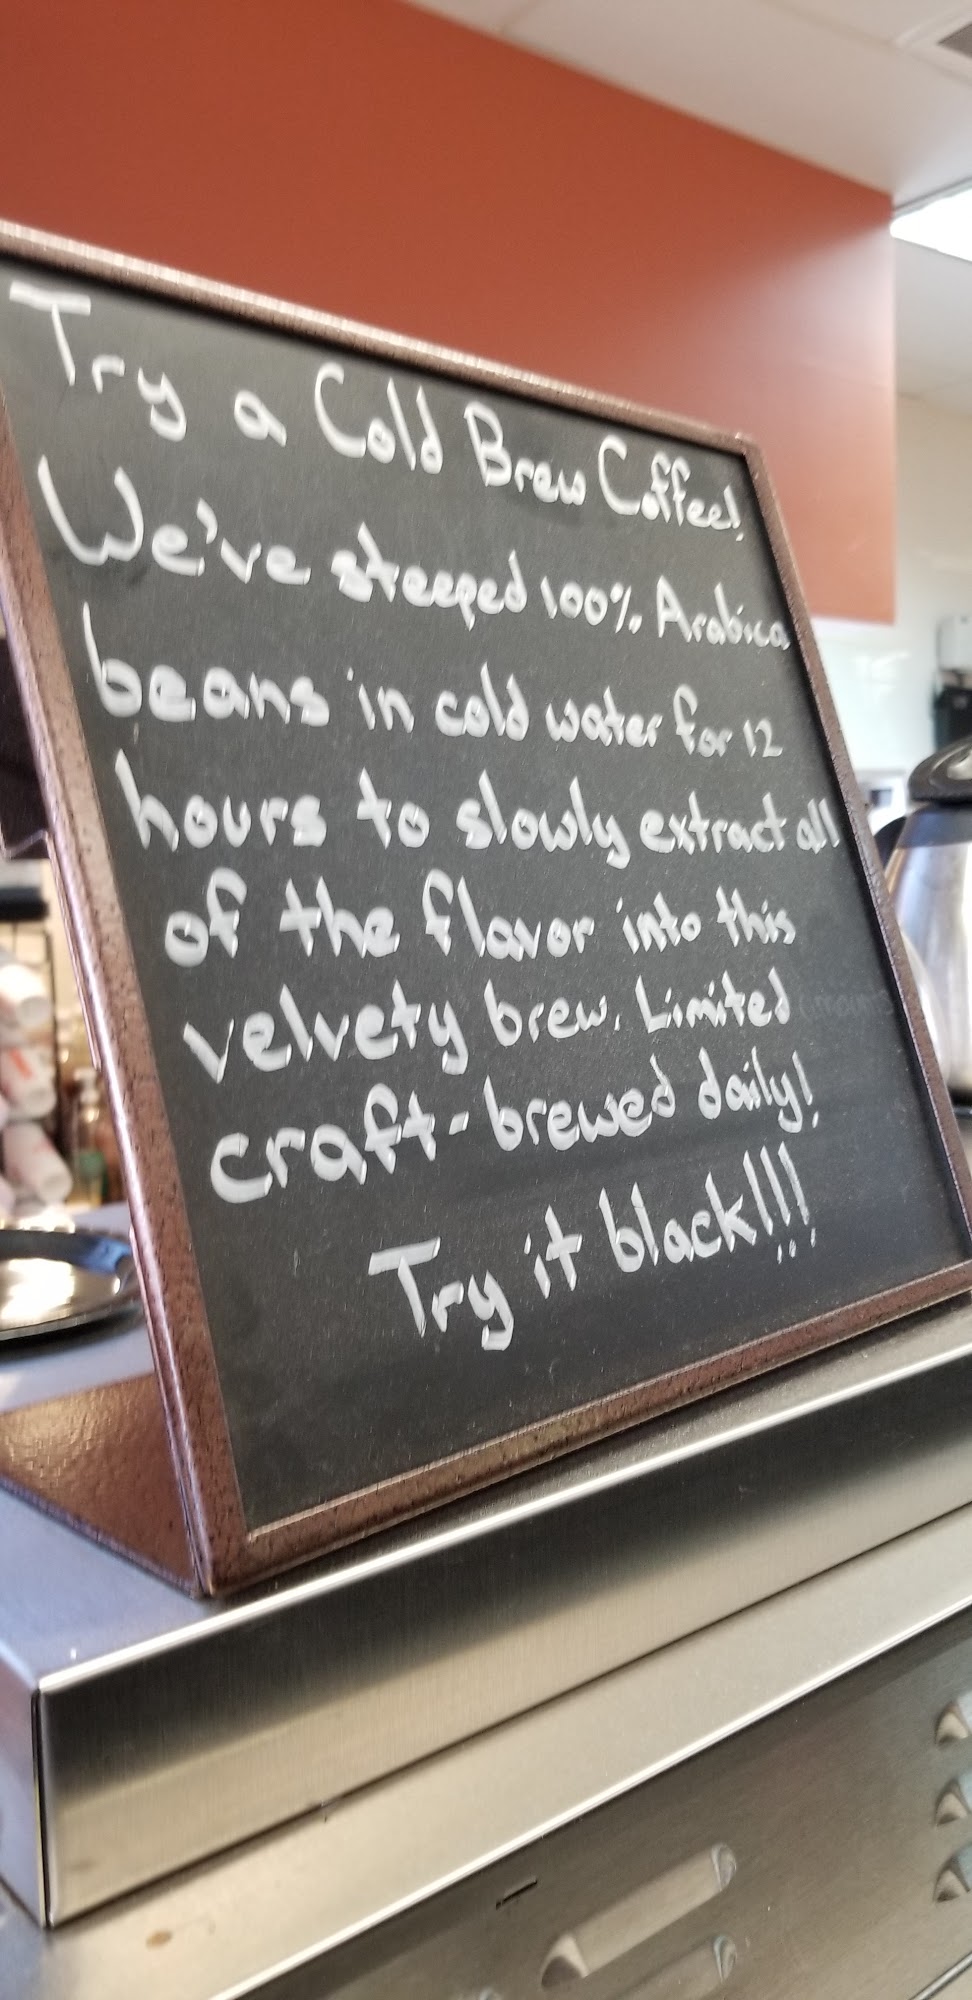 Try a Cold Brew Coffee!
We've steeped 100% Arabica
beans in cold water for 12
hours to slowly extract all
of the flavor into this
velvety brew. Limited
craft-brewed daily!
Try it black!!!